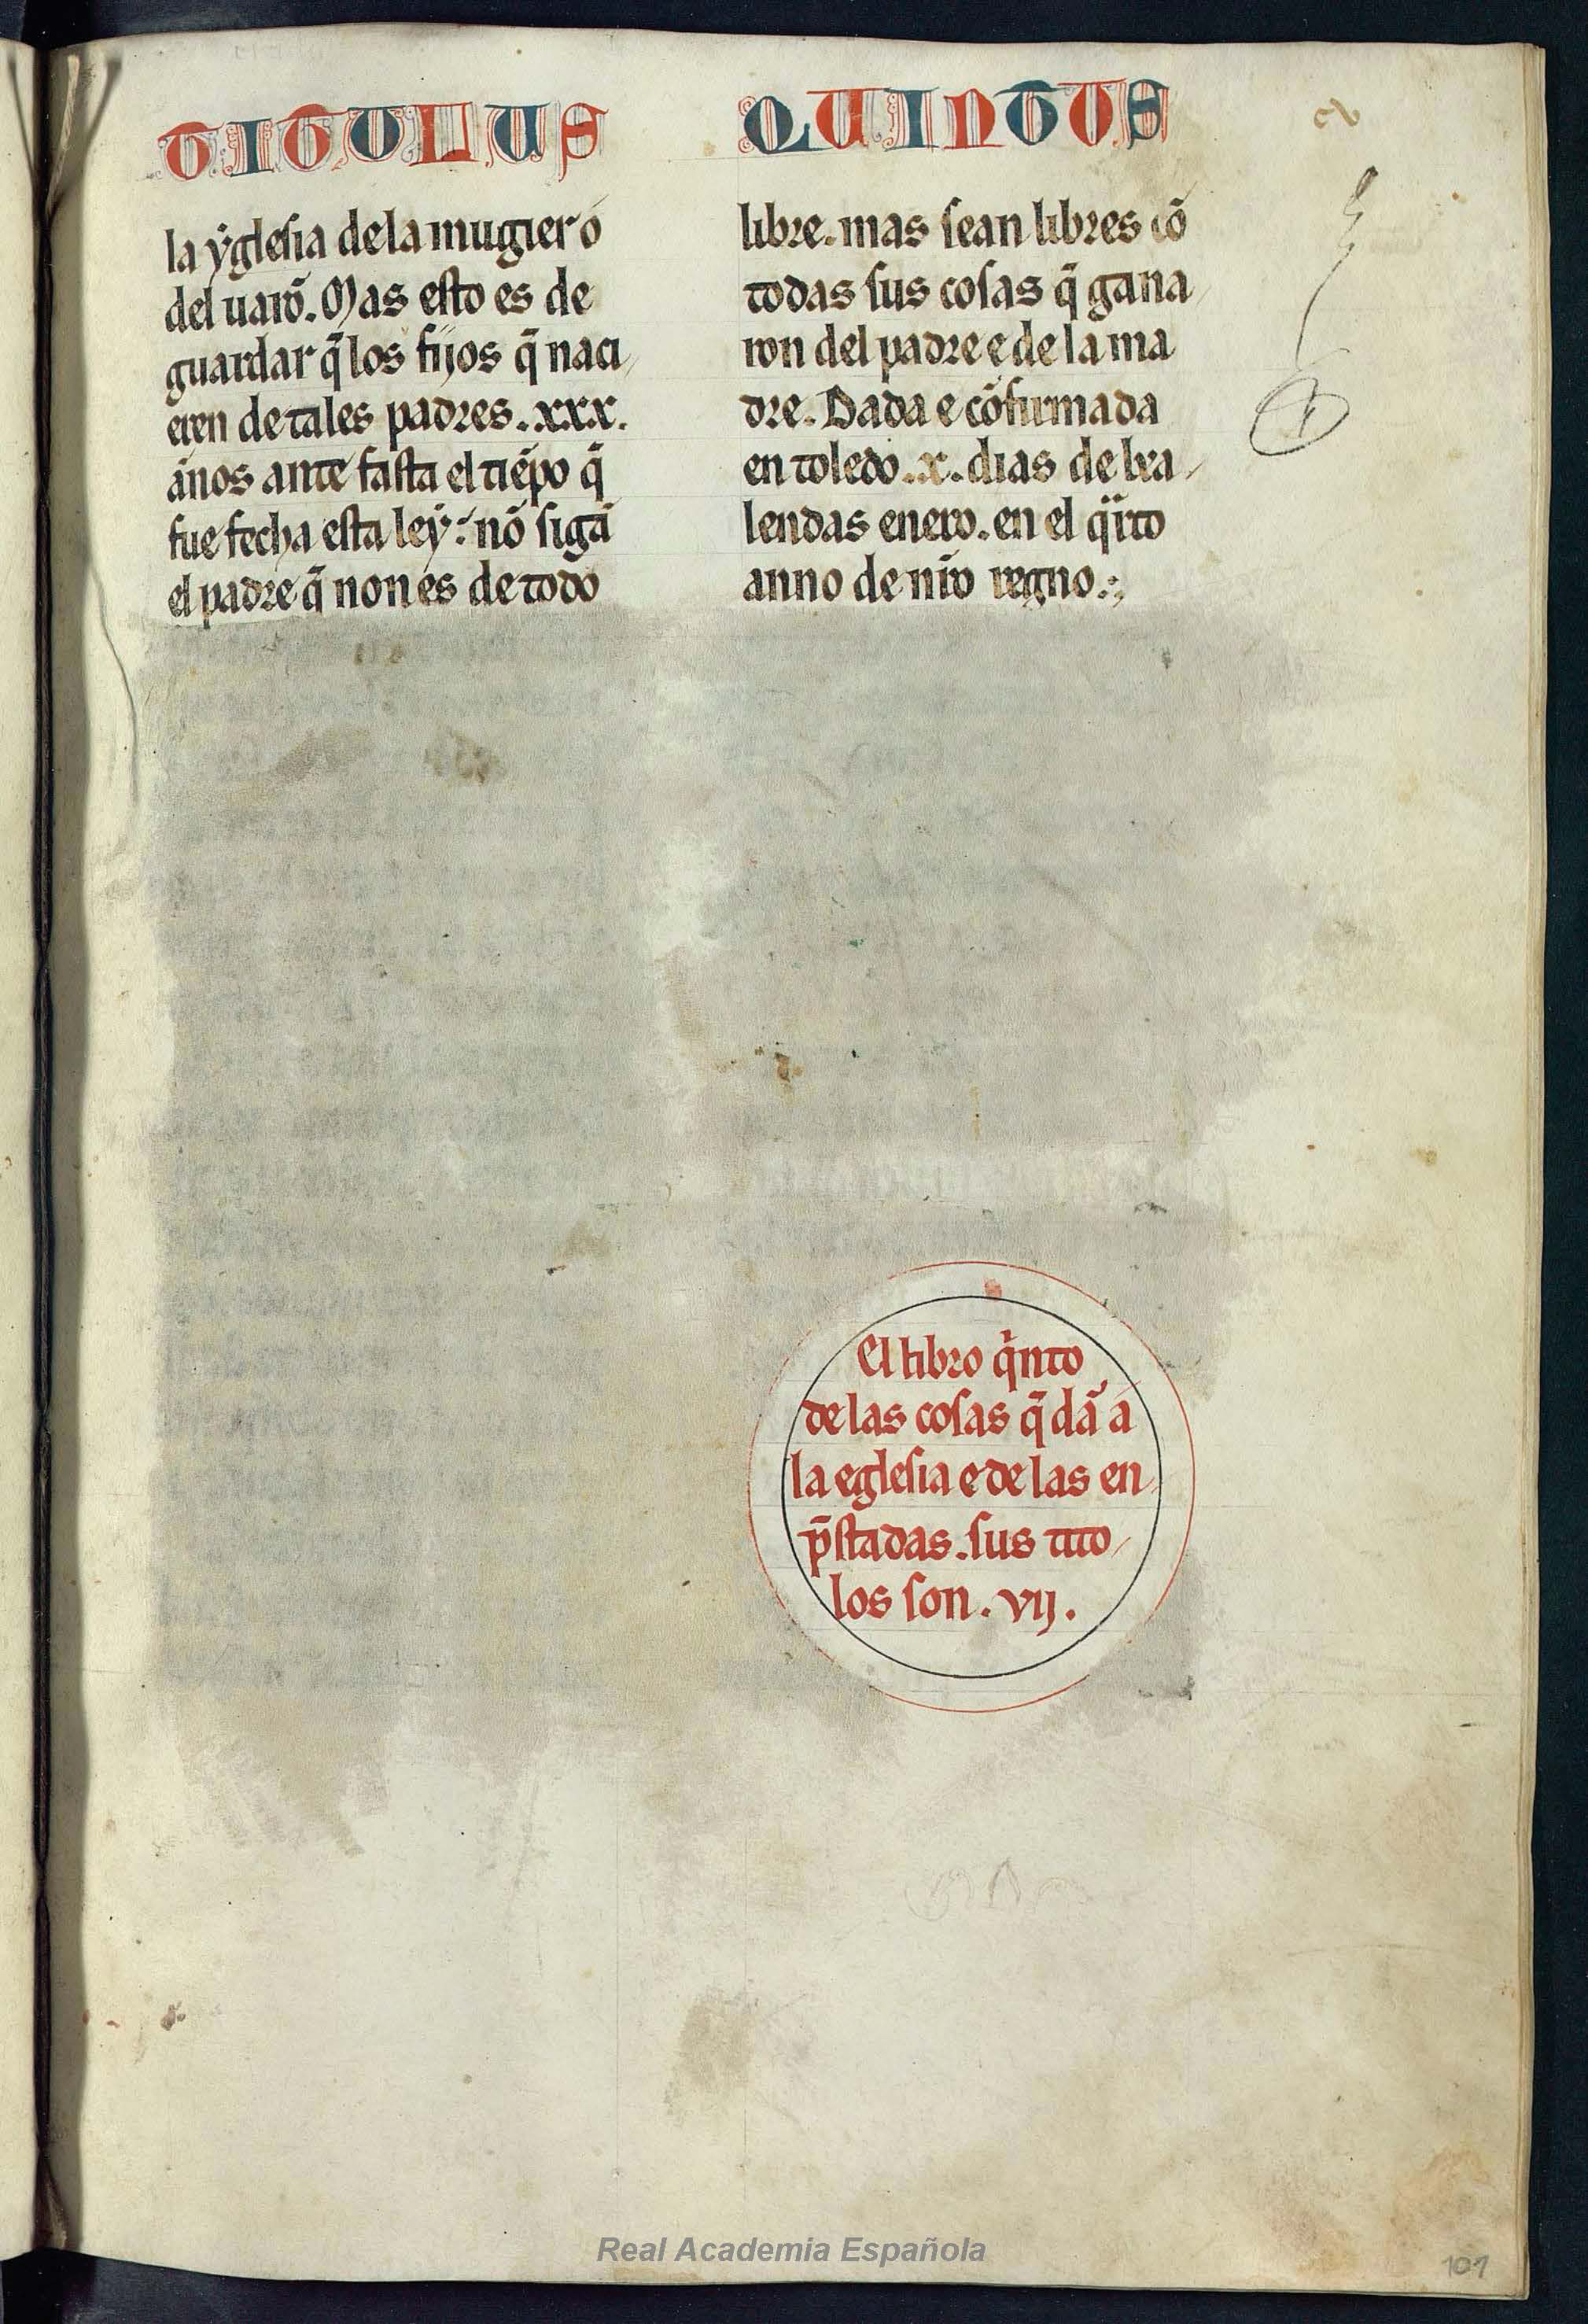 TITULUS
la ẏglesia de la mugier o
del uarõ. Mas esto es de
guardar q̃ los fijos q̃ naci
eren de tales padres .xxx.
ãnos ante fasta el tiẽpo q̃
fue fecha esta leẏ: nõ sigã
el padre q̃ non es de todo
QUINTUS
libre. mas sean libres cõ
todas sus cosas q̃ gana
ron del padre e de la ma
dre. Dada e cõfirmada
en toledo .x. dias de lxa
lendas enero. en el q̃ito
anno de nr̃o regno.
El libro q̇nto
de las cosas q̃ dã a
la eglesia e de las en
p̃stadas. sus tito
los son .vij.
Real Academia Española
101